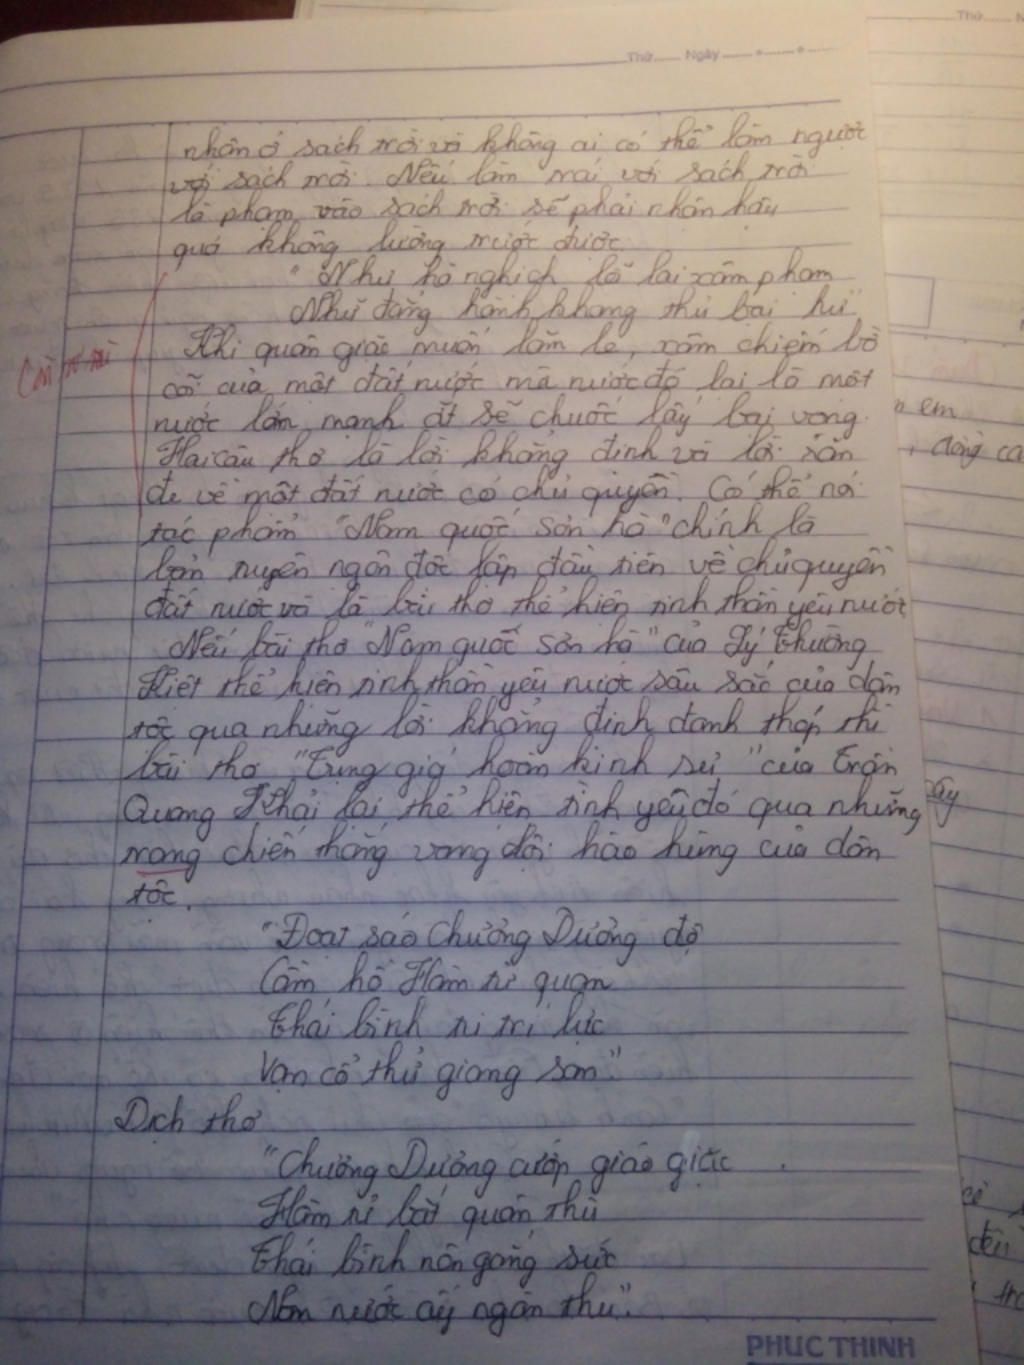 Thứ Ngày
nhân ở sách trời vì không ai có thể làm ngược
với sách trời. Nếu làm trái với sách trời
là phạm vào sách trời sẽ phải nhận hậu
quả không lường trước được.
"Như hà nghịch lỗ lai xâm phạm
Nhữ đẳng hành khang thủ bại hư"
Khi quân giặc muốn lăm le, xâm chiếm bờ
cõi của một đất nước mà nước đó lại là một
nước lớn mạnh ắt sẽ chuốc lấy bại vong.
Hai câu thơ là lời khẳng định và lời răn
đe về một đất nước có chủ quyền. Có thể nói
tác phẩm "Nam quốc sơn hà" chính là
bản tuyên ngôn độc lập đầu tiên về chủ quyền
đất nước và là bài thơ thể hiện tinh thần yêu nước
Nếu bài thơ "Nam quốc sơn hà" của Lý Thường
Kiệt thể hiện tinh thần yêu nước sâu sắc của dân
tộc qua những lời khẳng định đanh thép thì
bài thơ "Tụng giá hoàn kinh sư" của Trần
Quang Khải lại thể hiện tình yêu đó qua những
trang chiến thắng vang dội hào hùng của dân
tộc.
"Đoạt sáo Chương Dương độ
Cầm hồ Hàm tử quan
Thái bình tu trí lực
Vạn cổ thử giang san"
Dịch thơ
"Chương Dương cướp giáo giặc
Hàm tử bắt quân thù
Thái bình nên gắng sức
Non nước ấy ngàn thu".
PHUC THINH
Thứ
em